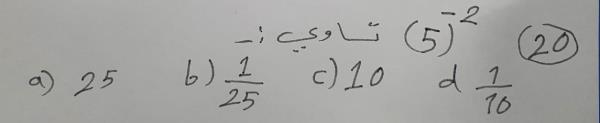 (20) (5)⁻² تساوي :-
a) 25 b) 1/25 c) 10 d 1/10